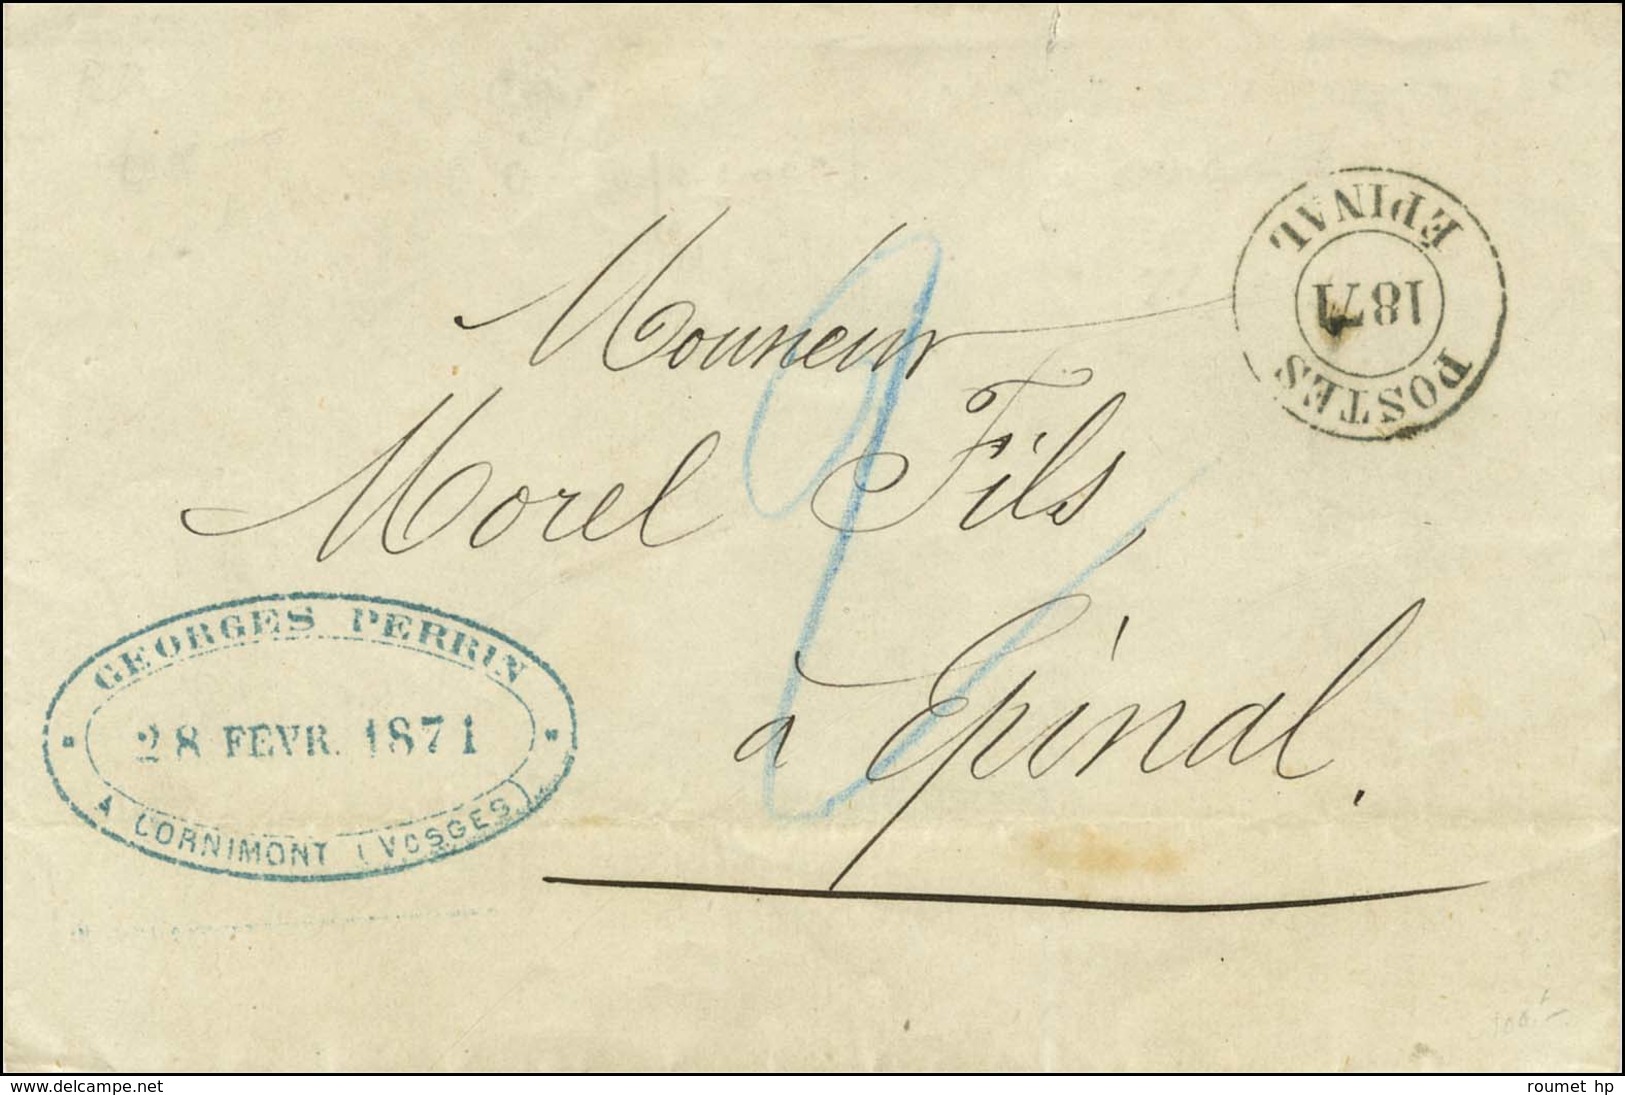 ÉPINAL
1871
POSTES
Monsieur
Morel Fils
à Epinal.
GEORGES PERRIN
28 FEVR. 1871
A CORNIMONT (VOSGES)
www.delcampe.net
roumet hp